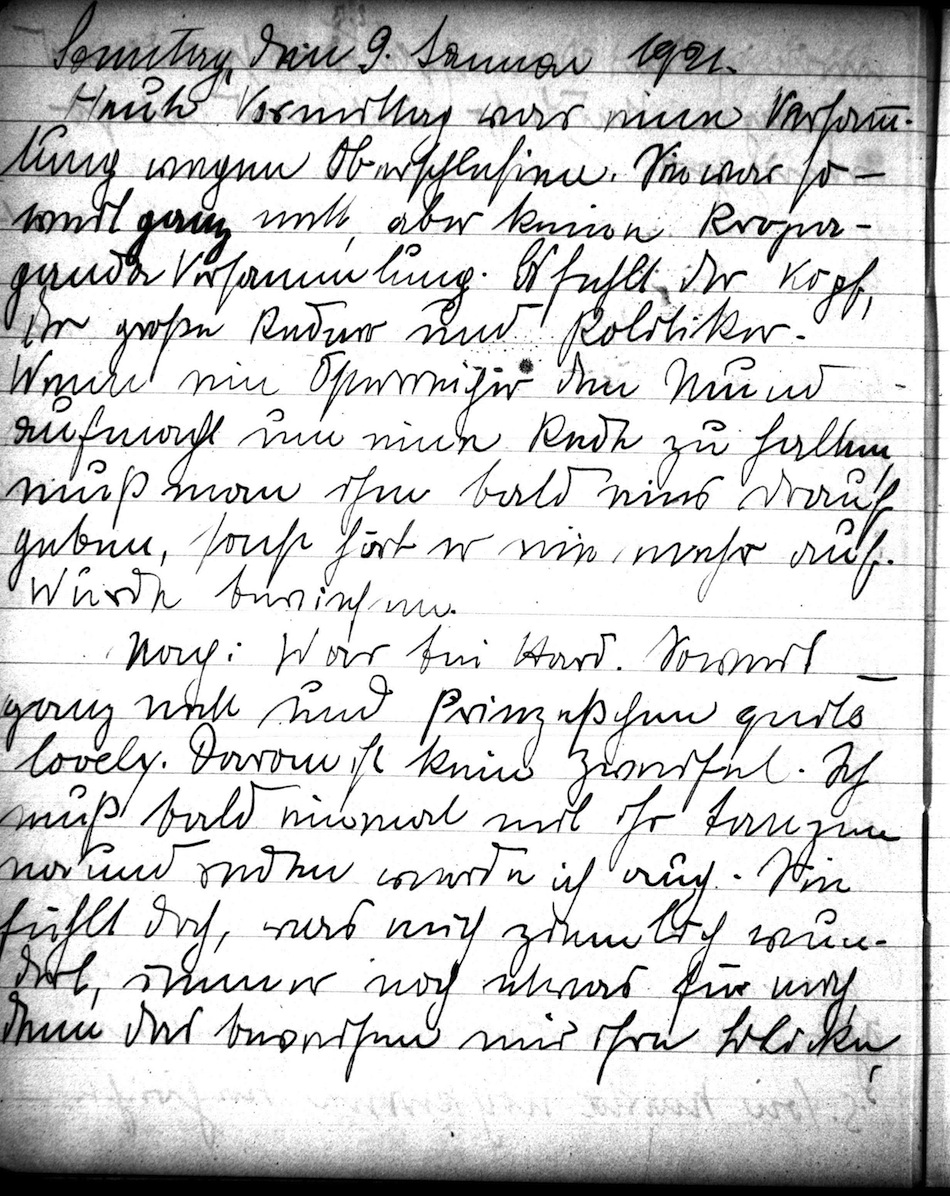 Sonntag, den 9. Januar 1921.
Heute Vormittag war eine Versamm-
lung wegen Oberschlesien. Sie war so-
weit ganz nett, aber keine Propa-
ganda Versammlung. Es fehlt der Kopf,
der große Redner und Politiker.
Wenn ein Österreicher den Mund
aufmacht um eine Rede zu halten
muß man ihm bald eins drauf
geben, sonst hört er nie mehr auf.
Würde beweisen.
Nach: War bei Hard. Soweit
ganz nett und Prinzeßchen quite
lovely. Daran ist kein Zweifel. Ich
muß bald einmal mit ihr tanzen
na und reden werde ich auch. Sie
fühlt doch, was mich ziemlich wun-
dert, immer noch etwas für mich,
denn das beweisen mir ihre Blicke,